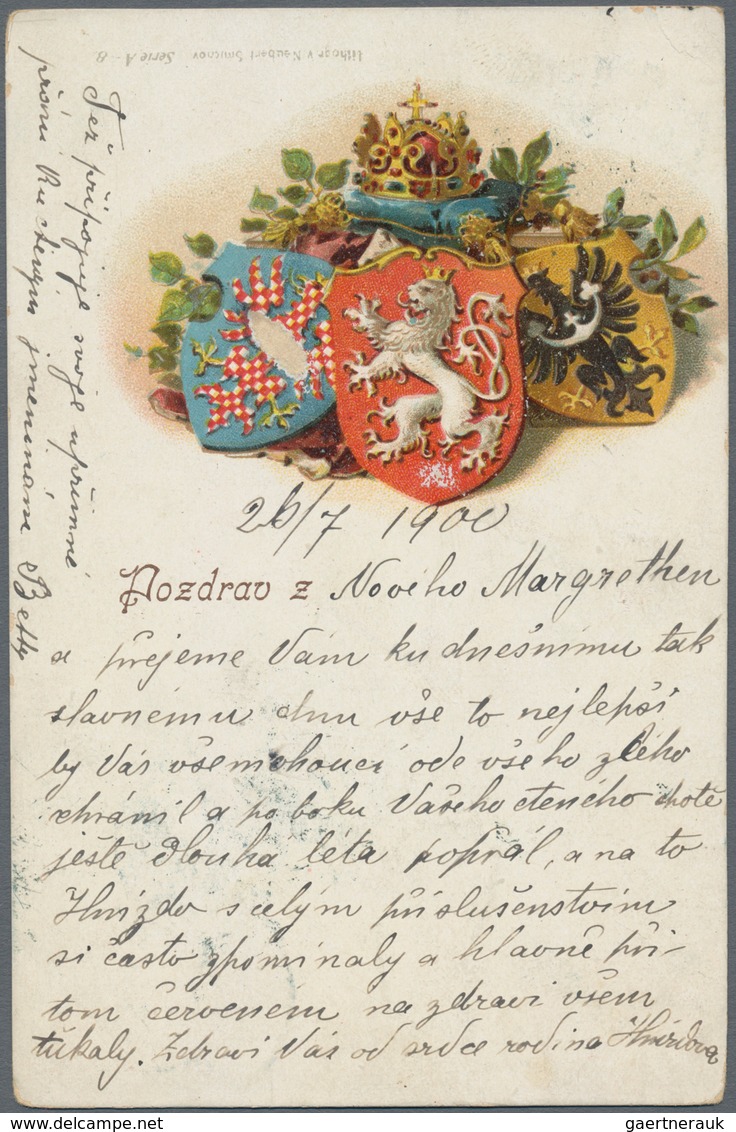 Lithogr v Neubert Smichov Serie A - 8.
26/7 1900
Pozdrav z Nového Margrethen
a přejeme Vám ku dnešnímu tak
slavnému dnu vše to nejlepší
by Vás všemohoucí ode všeho zlého
chránil a po boku Vašeho cteného chotě
ještě dlouha léta popřál, a na to
Hnízdo s celým příslušenstvím
si často zpomínaly a hlavně při-
tom červeném na zdraví všem
ťukaly. Zdraví Vás od srdce rodina Hnízdova
Též připojuje svoje upřímné
přání Betty
gaertnerauk